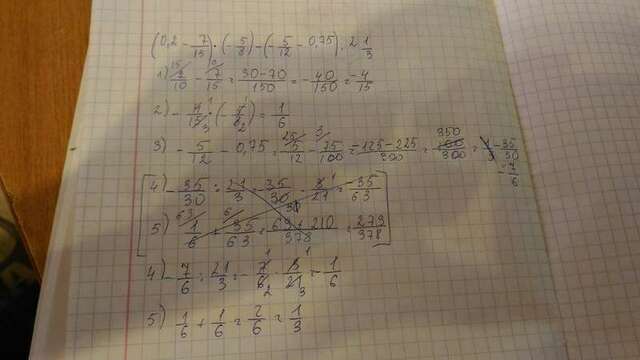 (0,2 - 7/15) · (- 5/8) - (- 5/12 - 0,75) : 2 1/3
1) 2/10 - 7/15 = 30-70/150 = - 40/150 = -4/15
2) - 4/15 · (- 5/8) = 1/6
3) - 5/12 - 0,75 = 5/12 - 75/100 = -125-225/300 = 350/300 = - 35/30
- 7/6
4) - 35/30 : 21/3 = 35/30 · 3/21 = -35/63
5) 1/6 + 35/63 = 63+210/378 = 273/378
4) - 7/6 : 21/3 = - 7/6 · 3/21 = - 1/6
5) 1/6 + 1/6 = 2/6 = 1/3